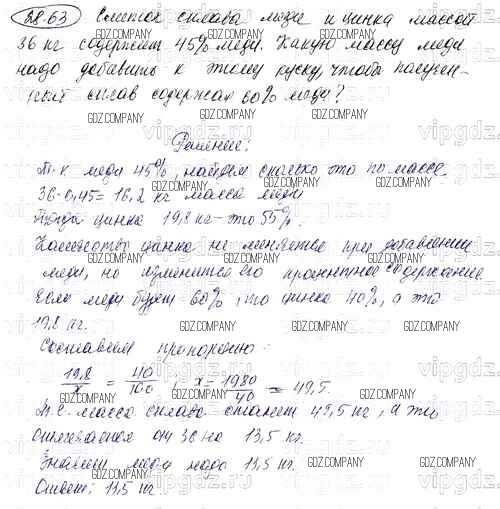 38.63 Слиток сплава меди и цинка массой
36 кг содержит 45% меди. Какую массу меди
надо добавить к этому куску, чтобы получен-
ный сплав содержал 60% меди?
Решение:
Т.к меди 45%, найдем сколько это по массе
36·0,45=16,2 кг масса меди
Тогда цинка 19,8 кг - это 55%.
Количество цинка не меняется при добавлении
меди, но изменится его процентное содержание
Если меди будет 60%, то цинка 40%, а это
19,8 кг.
Составим пропорцию:
19,8/x = 40/100; x = 1980/40 = 49,5.
Т.е. масса сплава станет 49,5 кг, а это
отличается от 36 на 13,5 кг.
Значит меди надо 13,5 кг.
Ответ: 13,5 кг